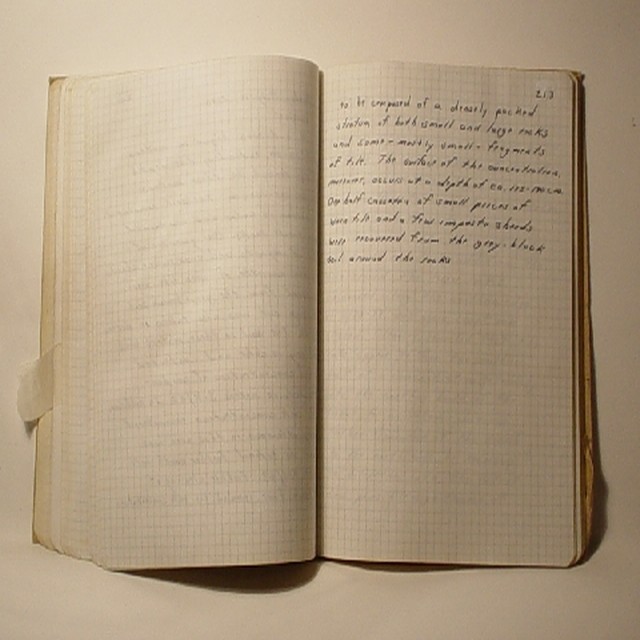 213
to be composed of a densely packed
stratum of both small and large rocks
and some - mostly small - fragments
of tile. The surface of the concentration,
moreover, occurs at a depth of ca.
One half of small pieces of
tile and a few impasto sherds
were recovered from the grey-black
soil around the rocks